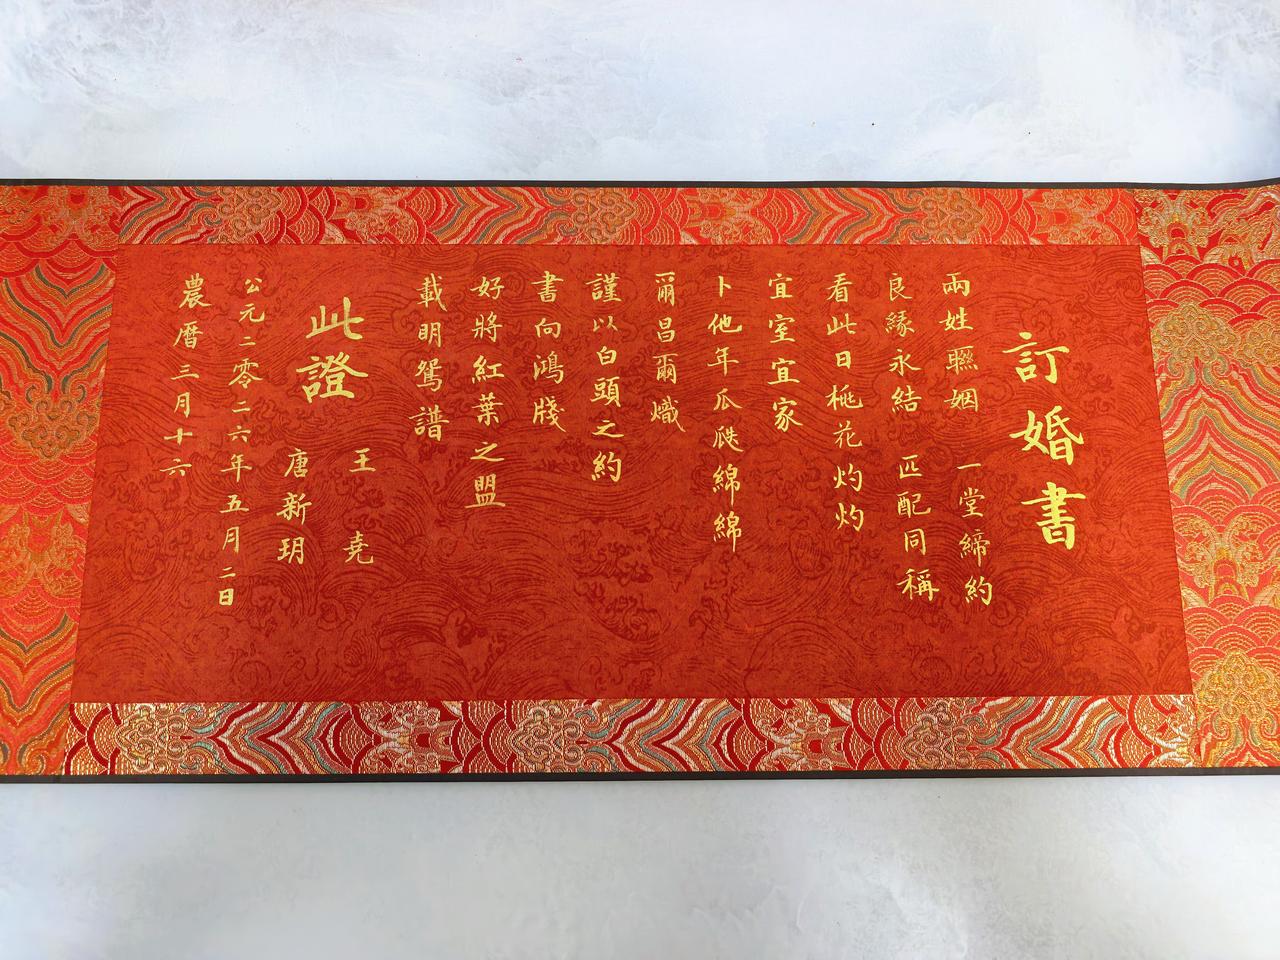 訂婚書
兩姓聯姻 一堂締約
良緣永結 匹配同稱
看此日桃花灼灼
宜室宜家
卜他年瓜瓞綿綿
爾昌爾熾
謹以白頭之約
書向鴻牋
好將紅葉之盟
載明鴛譜
此證
王堯
唐新玥
公元二零二六年五月二日
農曆三月十六